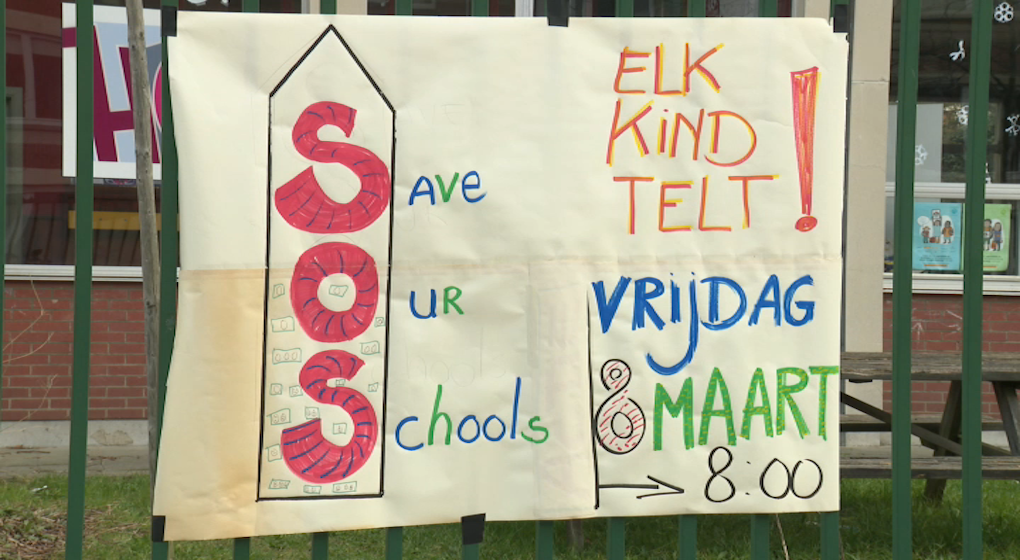 SAVE
OUR
Schools
ELK
KiND
TELT !
VRIJDAG
8 MAART
→ 8:00